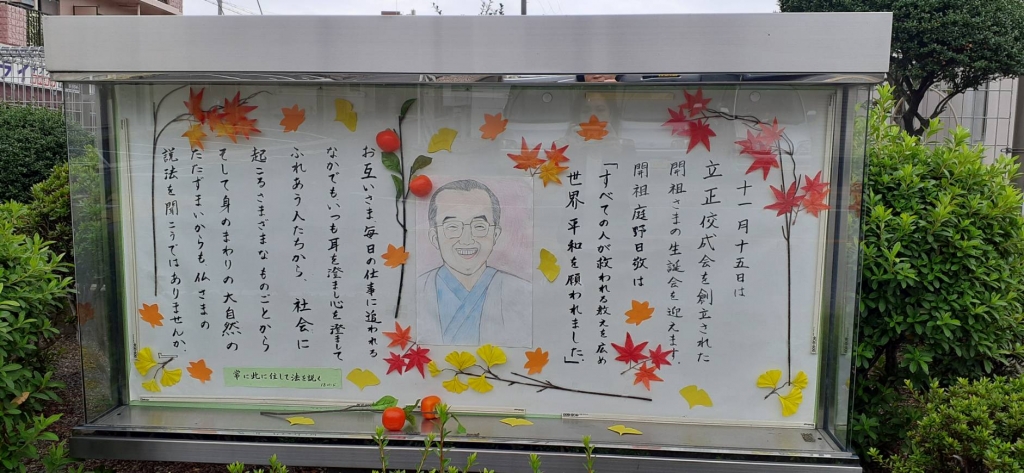 十一月十五日は
立正佼成会を創立された
開祖さまの生誕会を迎えます。
開祖庭野日敬は
「すべての人が救われる教えを広め
世界平和を願われました」
お互いさま毎日の仕事に追われる
なかでも、いつも耳を澄まし心を澄まして、
ふれあう人たちから、社会に
起こるさまざまなものごとから
そして身のまわりの大自然の
たたずまいからも仏さまの
説法を聞こうではありませんか。
常に此に住して法を説く